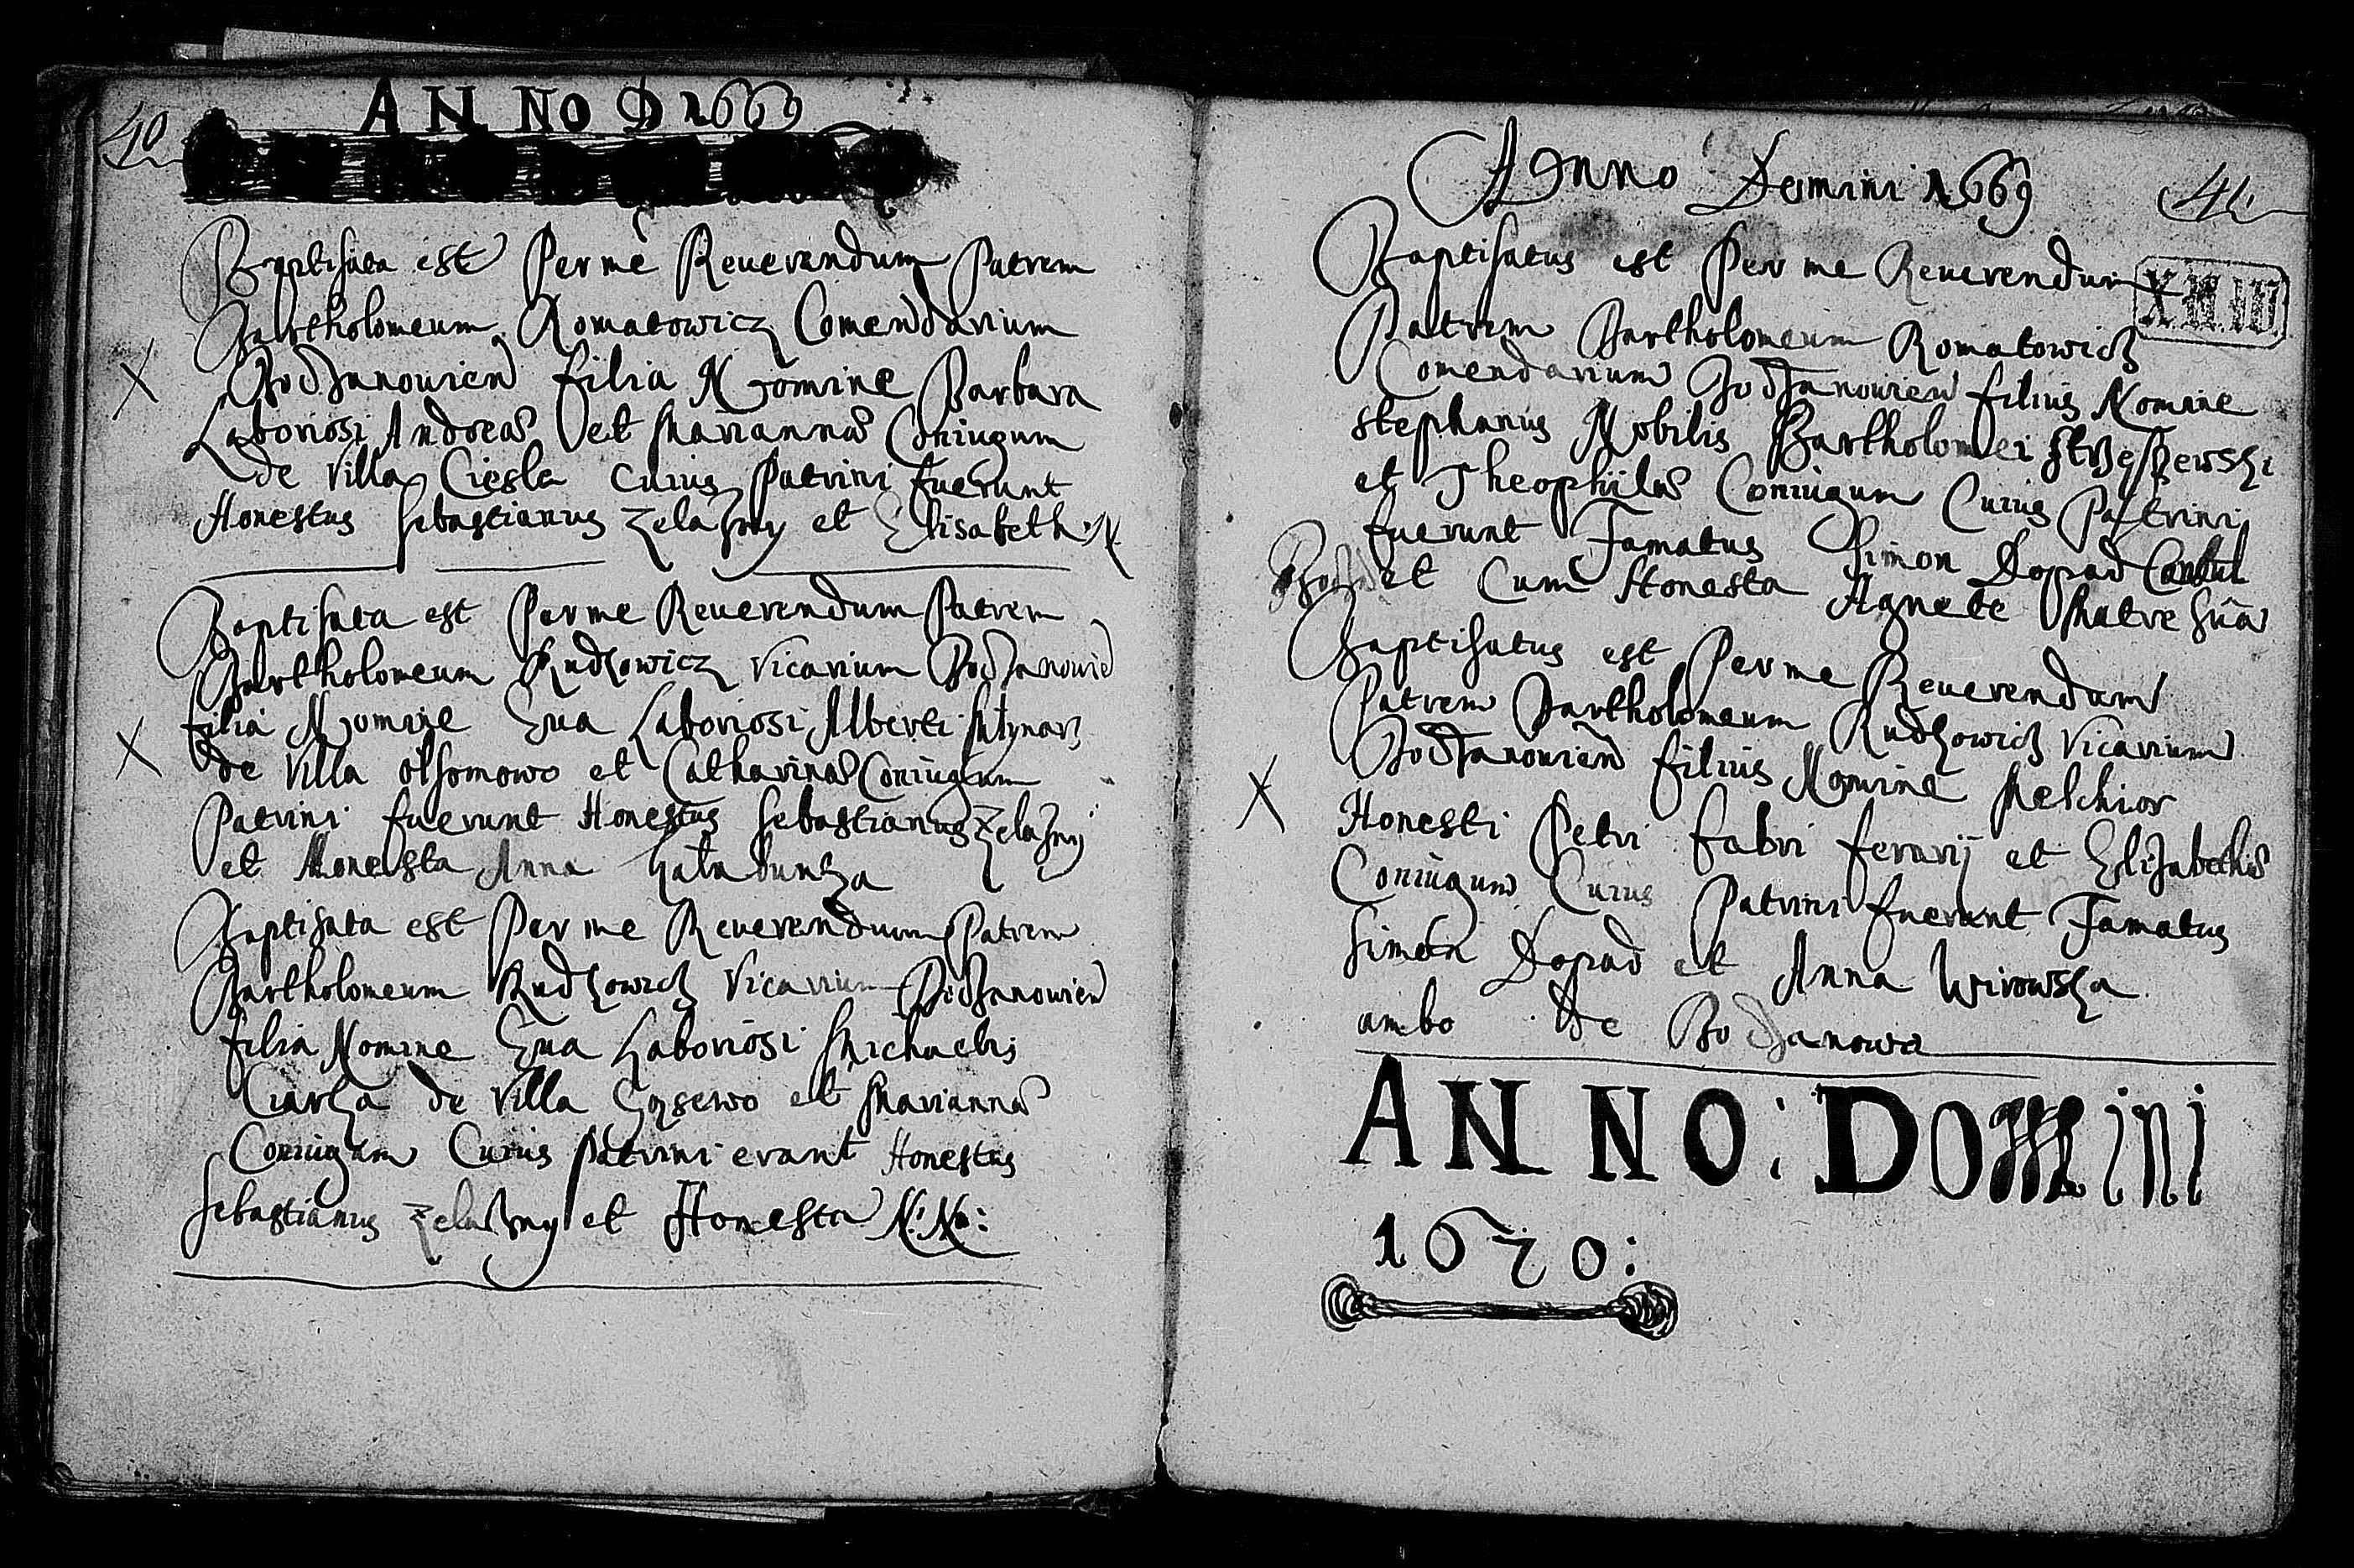 40
ANNO D 1669
Baptisata est Per me Reuerendum Patrem
Bartholomeum Romatowicz Comendarium
Bodzanouien filia Nomine Barbara
Laboriosi Andreae et Marianna Coniugum
de Villa Ciesle Cuius Patrini fuerunt
Honestus Sebastianus Zelazny et Elisabeth N
Baptisata est Per me Reuerendum Patrem
Bartholomeum Rudkowicz Vicarium Bodzanouie
filia Nomine Eua Laboriosi Alberti Młynarz
de Villa Olsomowo et Catharinae Coniugum
Patrini fuerunt Honestus Sebastianus Zelazny
et Honesta Anna
Baptisata est Per me Reuerendum Patrem
Bartholomeum Rudkowicz Vicarium Bodzanouien
filia Nomine Eua Laboriosi Michaelis
Ciarka de Villa Gąsewo et Marianna
Coniugum Cuius Patrini erant Honestus
Sebastianus Zelazny et Honesta N: N:
Anno Domini 1669
41
Baptisatus est Per me Reuerendum
Patrem Bartholomeum Romatowicz
Comendarium Bodzanouien filius Nomine
Stephanus Nobilis Bartholomei
et Theophilae Coniugum Cuius Patrini
fuerunt Famatus Simon Dopad
et Cum Honesta Agnete Matre Sua
Baptisatus est Per me Reuerendum
Patrem Bartholomeum Rudkowicz Vicarium
Bodzanouien filius Nomine Melchior
Honesti Petri Fabri ferarij et Elizabethis
Coniugum Cuius Patrini fuerunt Famatus
Simon Dopad et Anna Wirowska
ambo de Bodzanowa
ANNO: DOMini
1670: